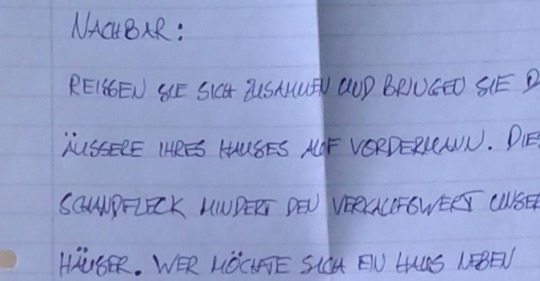 NACHBAR:
REISSEN SIE SICH ZUSAMMEN UND BRINGEN SIE D
ÄUSSERE IHRES HAUSES AUF VORDERMANN. DIES
SCHANDFLECK MINDERT DEN VERKAUFSWERT UNSER
HÄUSER. WER MÖCHTE SICH EIN HAUS NEBEN